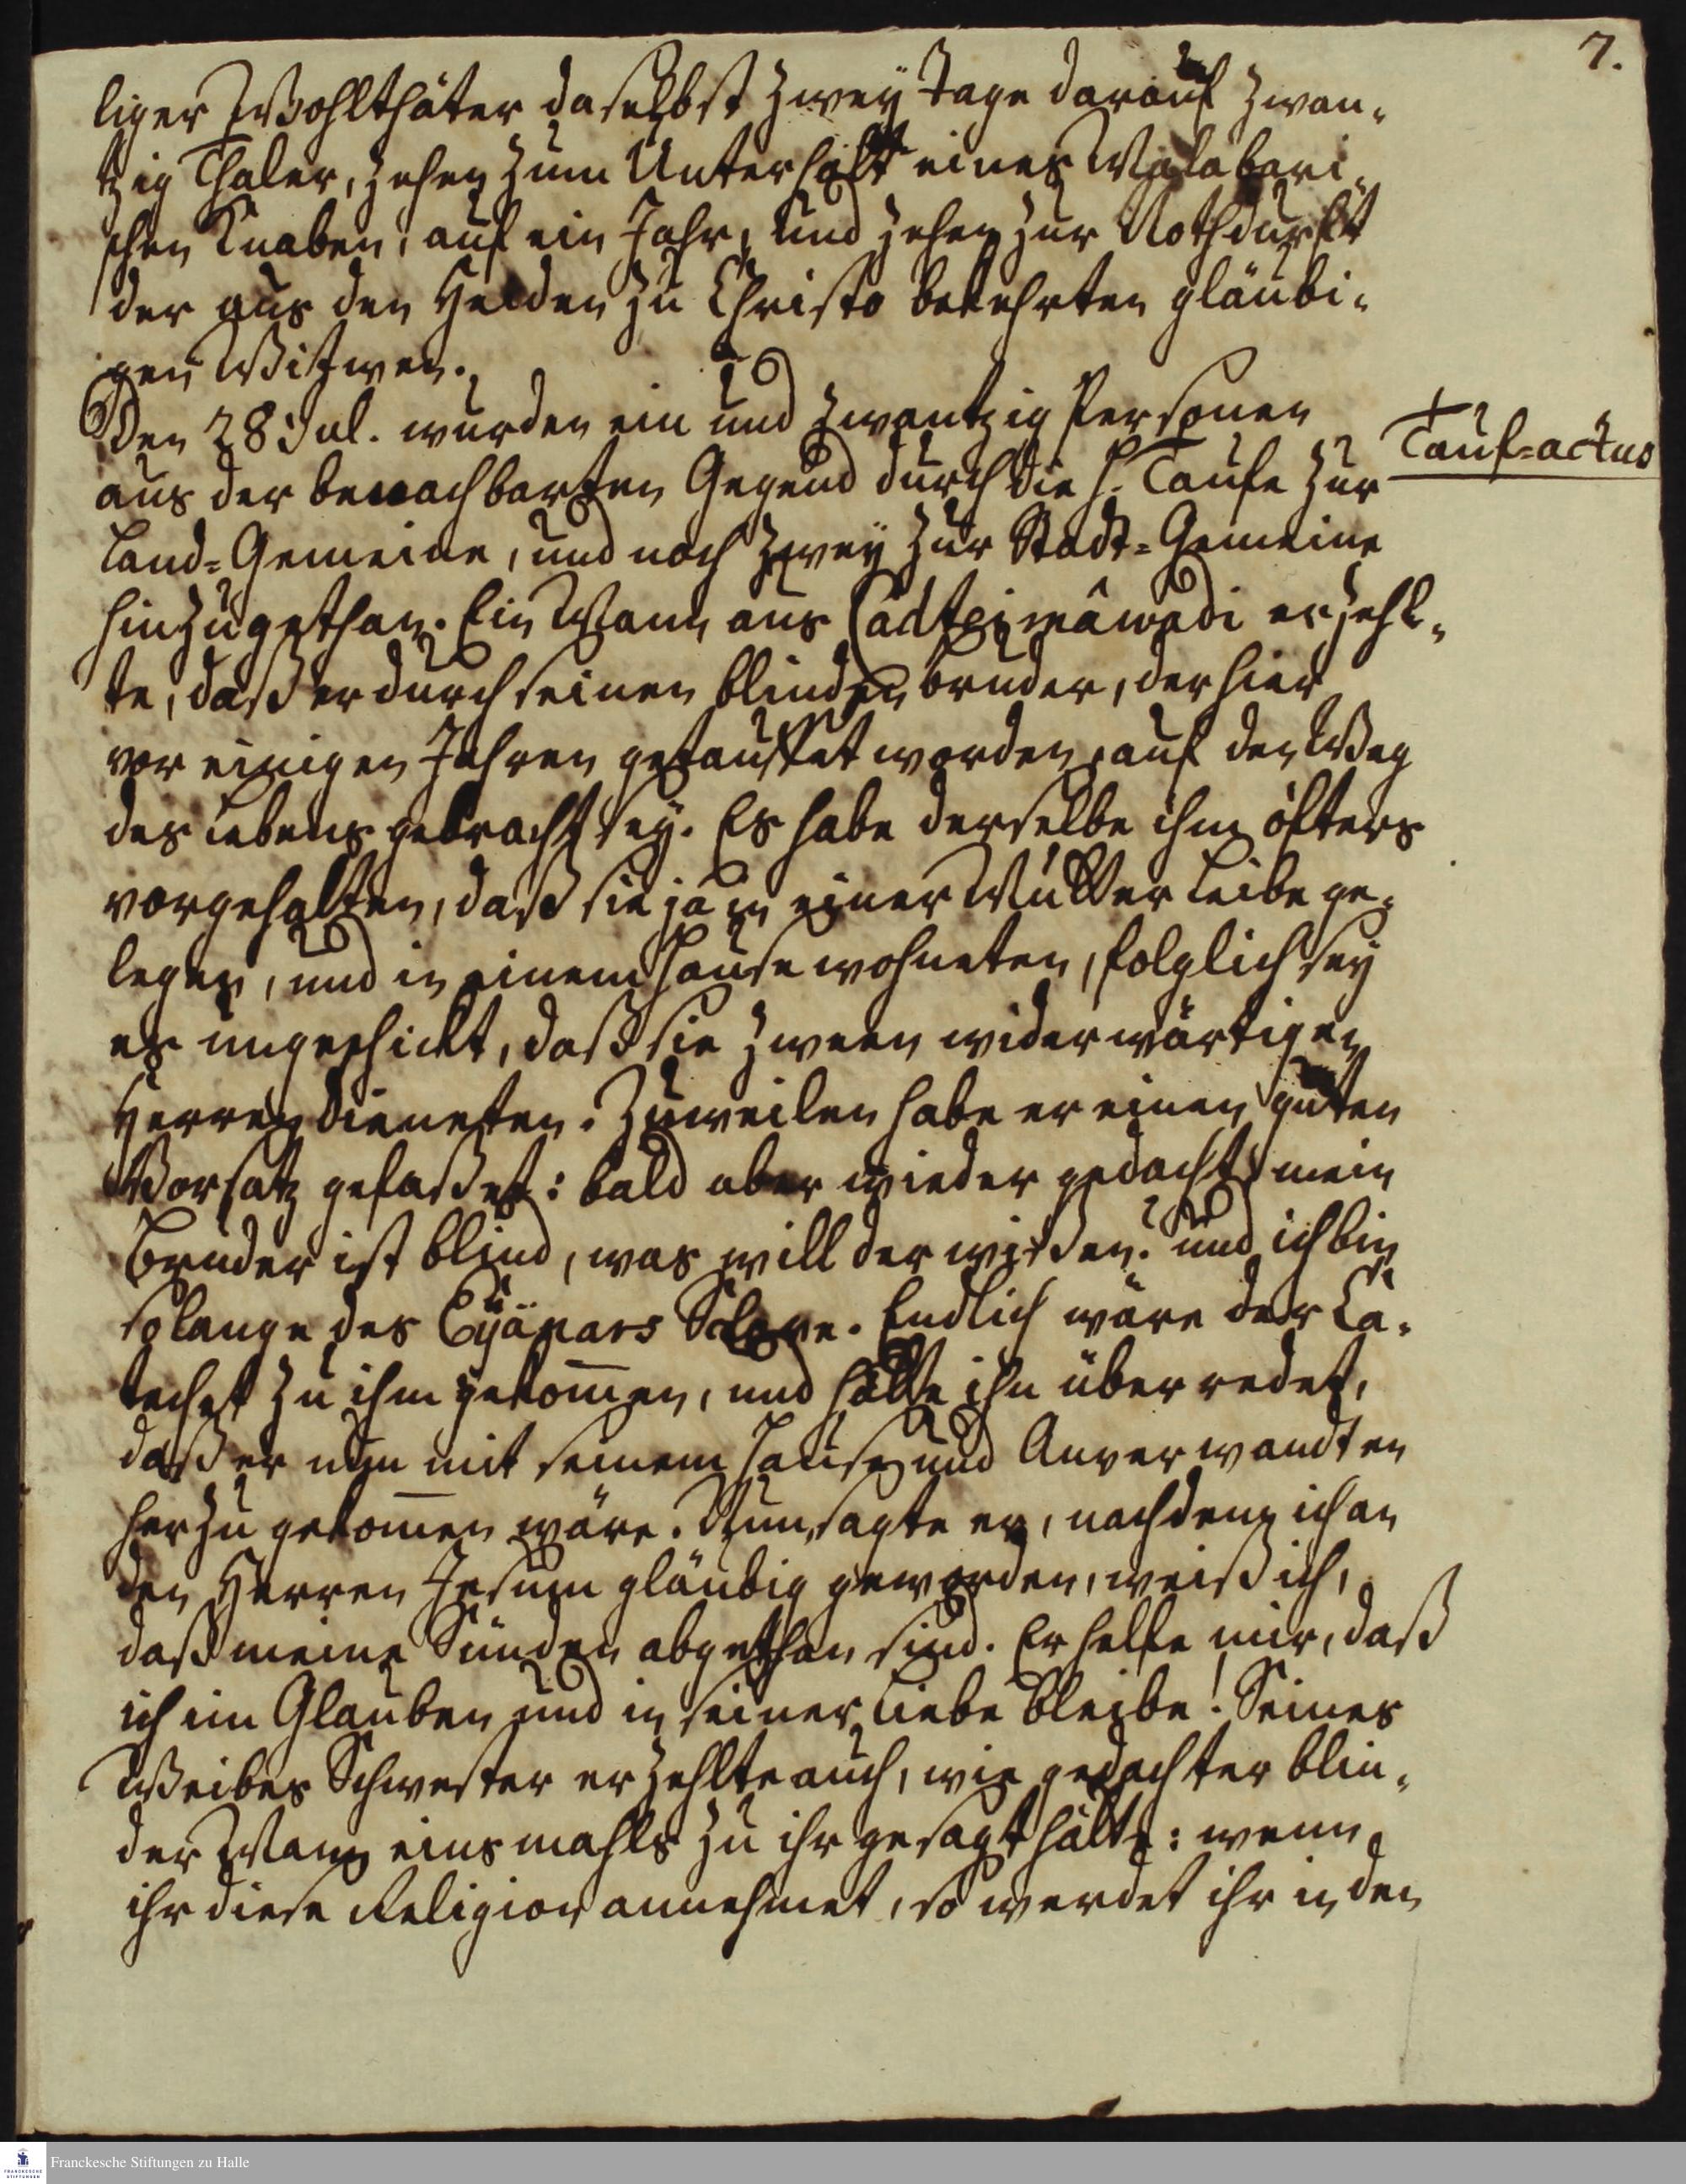 7.
liger Wohlthäter daselbst zwey Tage darauf zwan-
tzig Thaler, zehen zum Unterhalt eines Malabari-
schen Knaben, auf ein Jahr, und zehen zur Nothdurft
der aus den Heiden zu Christo bekehrten gläubi-
gen Witwen.
Den 28 Jul. wurden ein und zwantzig Personen
Tauf=actus
aus der benachbarten Gegend durch die h. Taufe zur
Land=Gemeine, und noch zwey zur Stadt=Gemeine
hinzugethan. Ein Mann aus Cadteimâwadi erzehl-
te, daß er durch seinen blinden Bruder, der hier
vor einigen Jahren getauffet worden, auf den Weg
des Lebens gebracht sey. Es habe derselbe ihm öfters
vorgehalten, daß sie ja in einer Mutter Leibe ge-
legen, und in einem Hause wohneten, folglich sey
es ungeschickt, daß sie zween widerwärtigen
Herren dieneten. Zuweilen habe er einen guten
Vorsatz gefaßet: bald aber wieder gedacht, mein
Bruder ist blind, was will der wißen? und ich bin
so lange des Eyänars Sclave. Endlich wäre der Ca-
techet zu ihm gekom̄en, und hätte ihn überredet,
daß er nun mit seinem Hause und Anverwandten
herzu gekom̄en wäre. Nun, sagte er, nachdem ich an
den Herren Jesum gläubig geworden, weiß ich,
daß meine Sünden abgethan sind. Er helfe mir, daß
ich im Glauben und in seiner Liebe bleibe! Seines
Weibes Schwester erzehlte auch, wie gedachter blin-
der Mann einsmahls zu ihr gesagt hätte: wenn
ihr diese Religion annehmet, so werdet ihr in den
Franckesche Stiftungen zu Halle